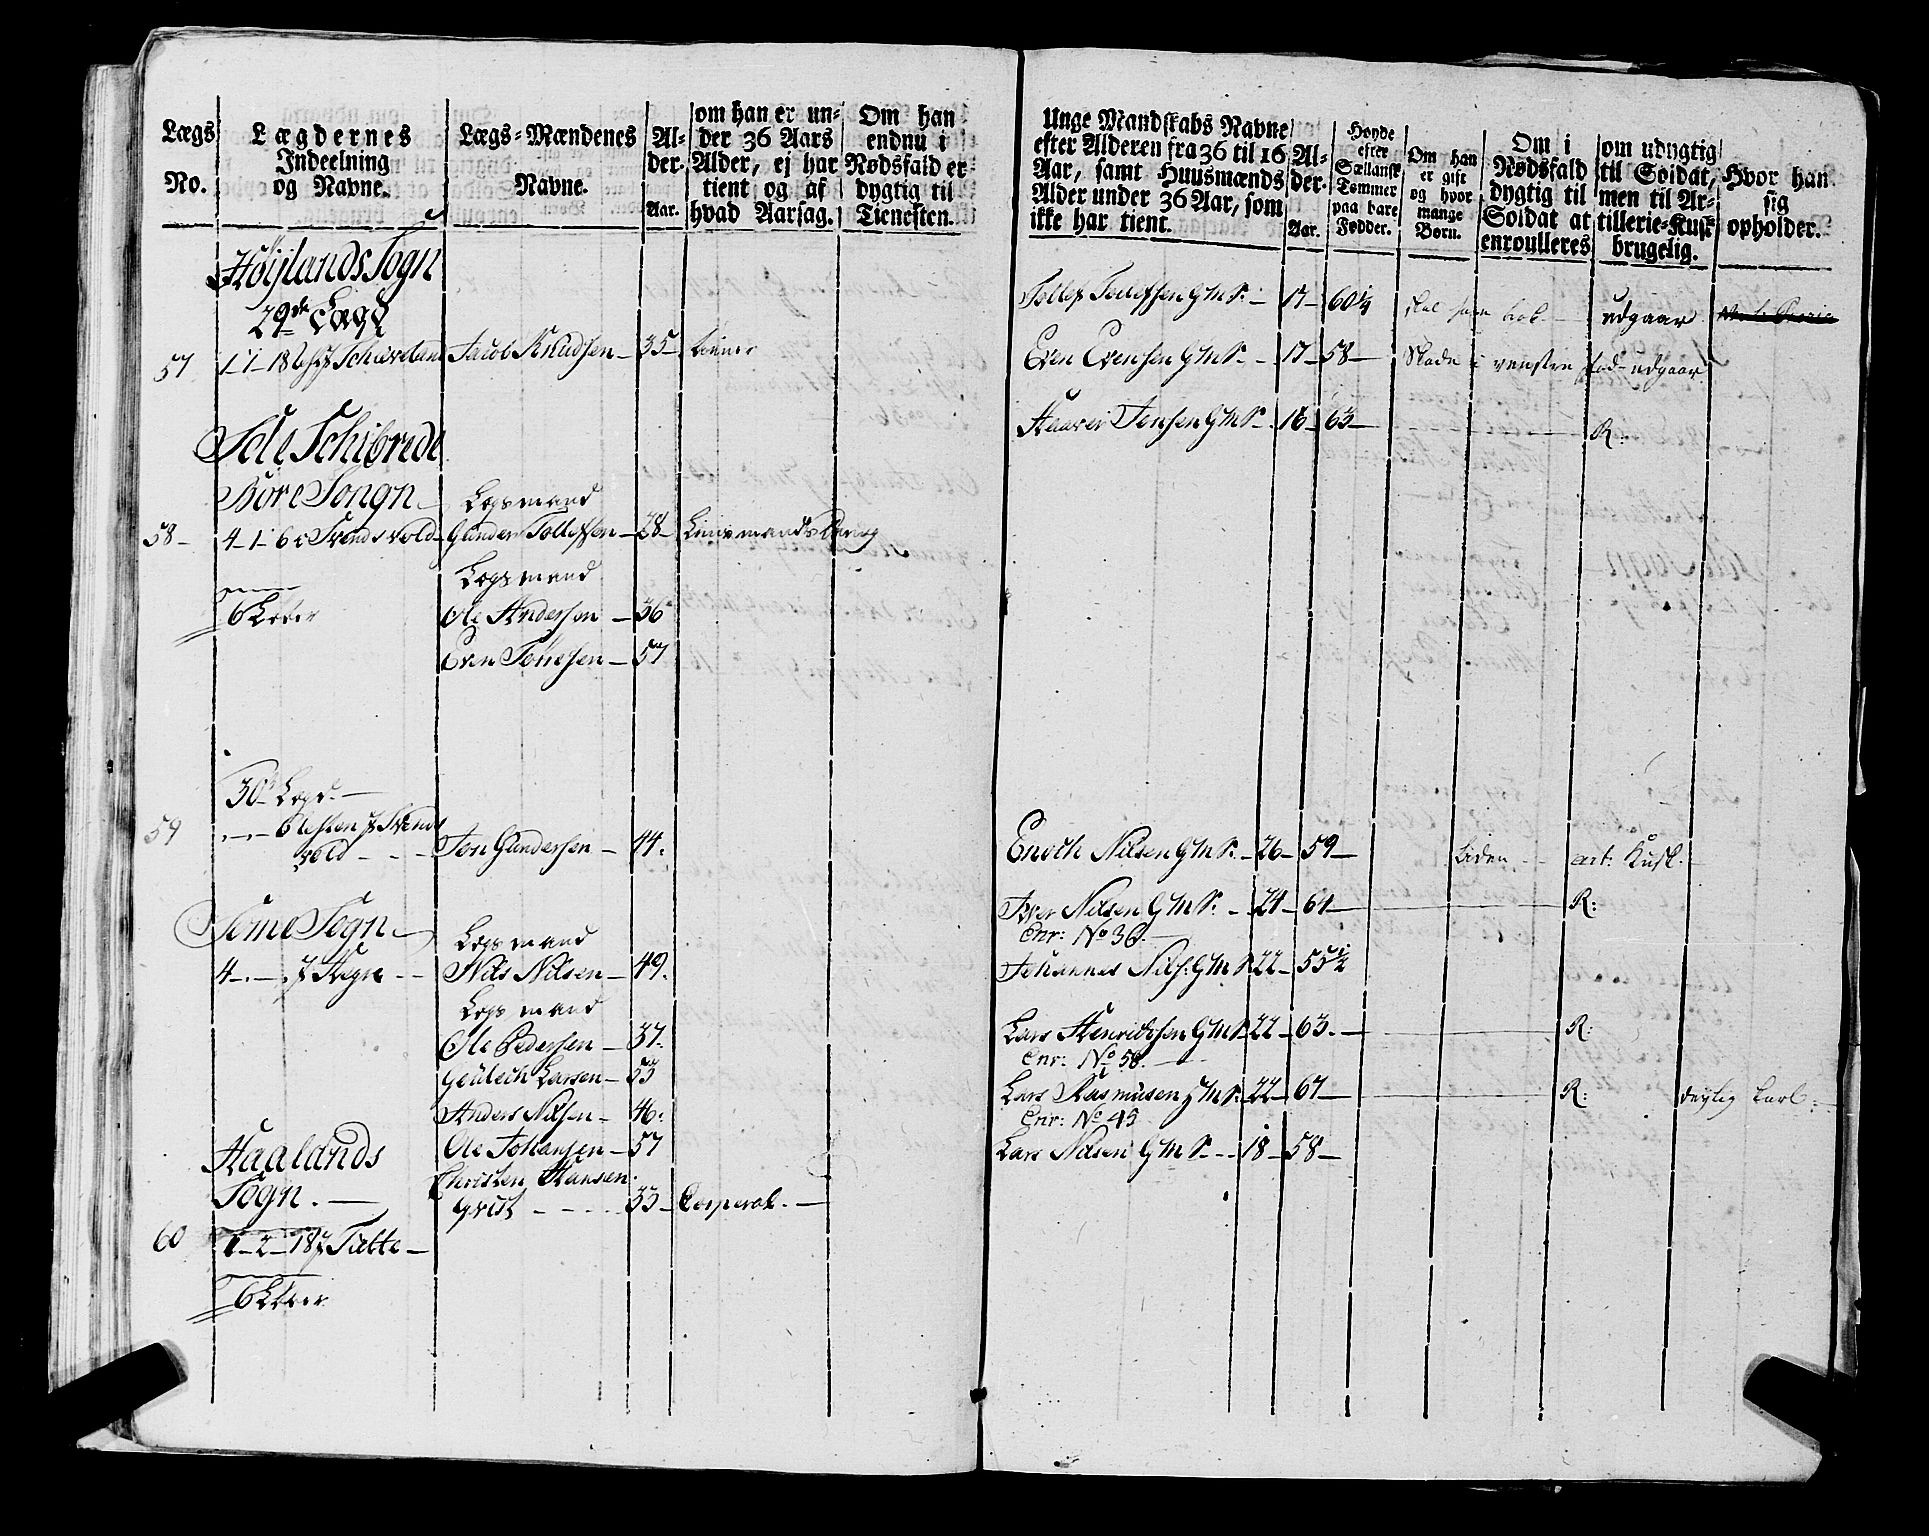 Lægs No.
Lægdernes Indeelning og Navne.
Lægs-Mændenes Navne.
Al-der. Aar.
om han er un-
der 36 Aars
Alder, ej har
tient og af
hvad Aarsag.
Om han
endnu i
Nødsfald er
dygtig til
Tienesten.
Høylands Sogn
29de Lægd
57 Jacob Knudsen 35
Schibrede
Bore Songn
Lægsmand
58 4-1-6 Gunder Tollefsen 28
Lægsmand
6
Ole Andersen 36
Even Tønesen 57
30 Lægd
59
vold Jon Gundersen 44
Sogn
Lægsmand
4 Nils Nilsen 49
Lægsmand
Ole Pedersen 37
Larsen 53
Anders Nilsen 46
Haalands Ole Johansen 57
Sogn. Christen Hansen
33 Corperal
60 1-2-18 Tiette
6
Unge Mandskabs Navne
efter Alderen fra 36 til 16
Aar, samt Huusmænds
Alder under 36 Aar, som
ikke har tient.
Al-
der.
Aar.
Høyde
efter
Sællansk
Tommer
paa bare
Fødder.
Om han
er gift
og hvor
mange
Børn.
Om i
Nødsfald
dygtig til
Soldat at
enroulleres
om udygtig
til Soldat,
men til Ar-
tillerie-Kusk
brugelig.
Hvor han
sig
opholder.
Tollef Tollefsen G M S 17 60 1/4 udgaar
Even Evensen G M S 17 58 Skade i venstre fod udgaar
Jensen G M S 16 63 R:
Enoch Nilsen G M S 26 59 Liden art: Kusk
Iver Nilsen G M S 24 64 R:
Enr: No 36
Johannes Nils: G M S 22 55 1/2
Lars Henrichsen G M S 22 63 R:
Enr: No 58
Lars Rasmusen G M S 22 67 R: dygtig Karl
Enr: No 45
Lars Nilsen G M S 18 58